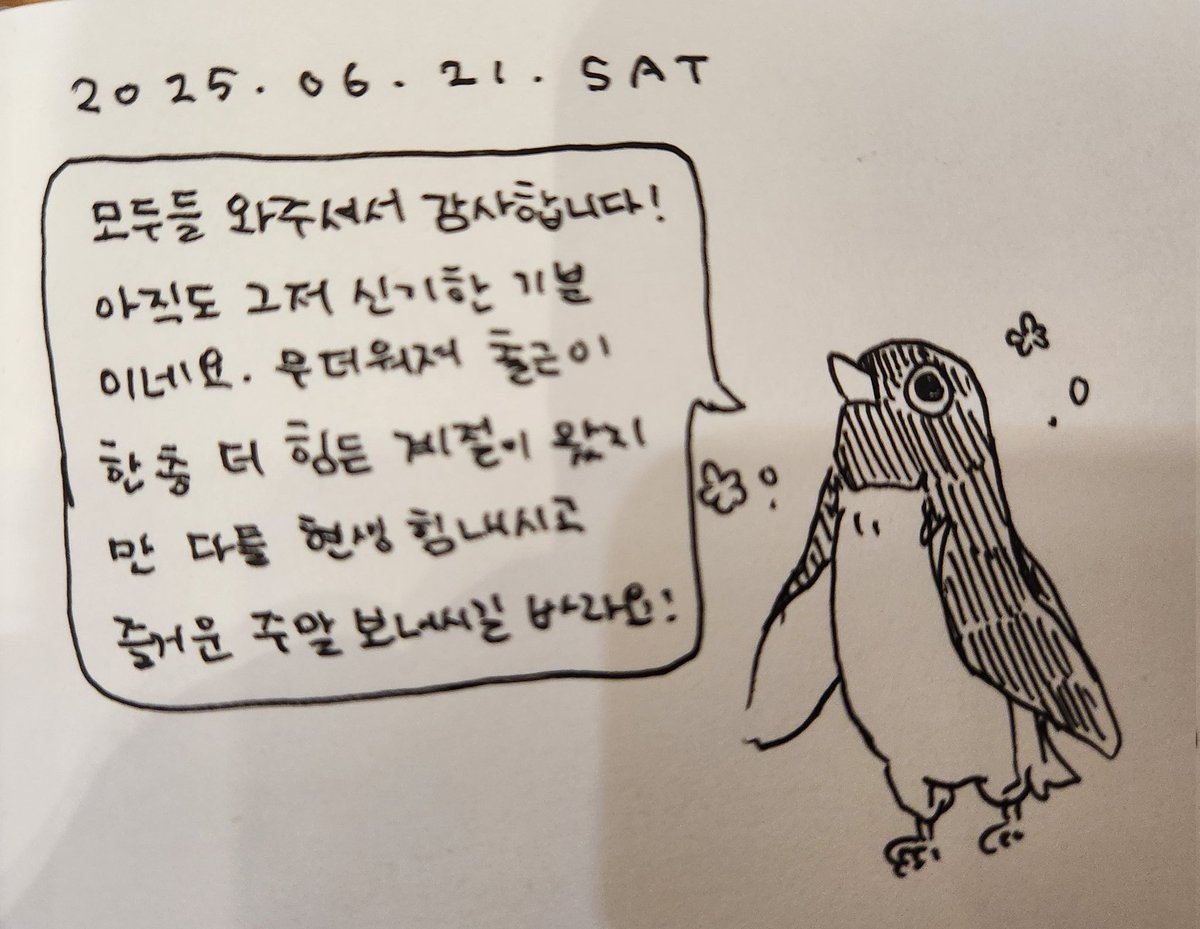 2025.06.21. SAT
모두들 와주셔서 감사합니다!
아직도 그저 신기한 기분
이네요. 무더워져 출근이
한층 더 힘든 계절이 왔지
만 다들 현생 힘내시고
즐거운 주말 보내시길 바라요!